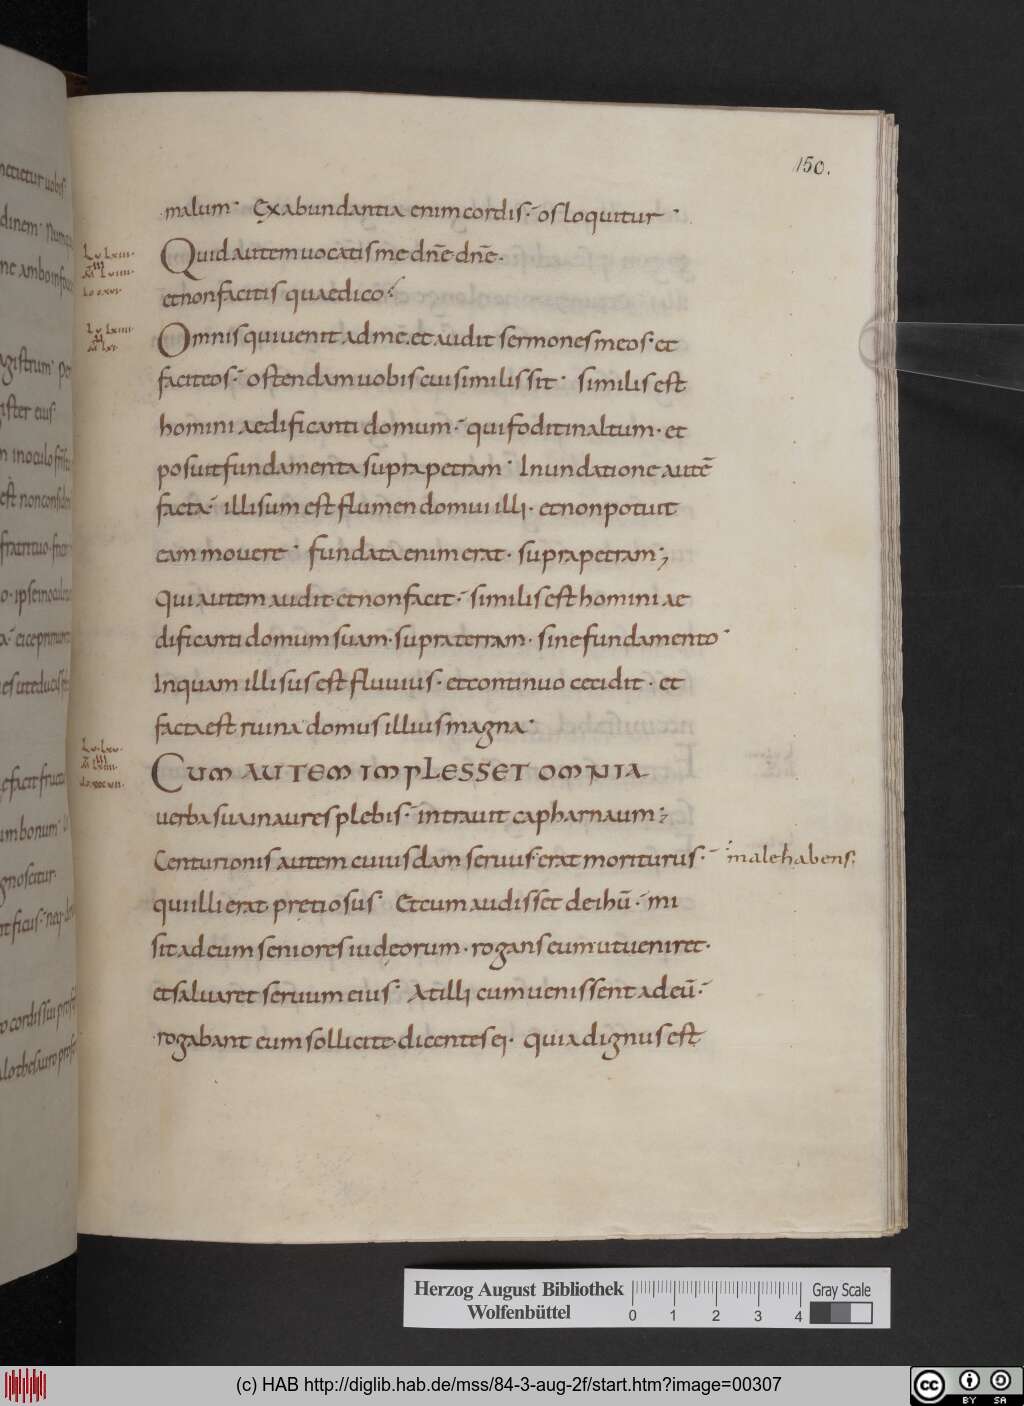 150.
malum· Exabundantia enim cordis· os loquitur·
Quid autem uocatis me dn̄e dn̄e·
et non facitis quae dico·
Omnis qui uenit ad me. et audit sermones meos· et
facit eos· ostendam uobis cui similis sit· similis est
homini aedificanti domum· qui fodit in altum· et
posuit fundamenta supra petram· Inundatione autē
facta· illisum est flumen domui illi· et non potuit
eam mouere· fundata enim erat· supra petram;
Qui autem audit· et non facit· similis est homini ae
dificanti domum suam· supra terram· sine fundamento·
In quam illisus est fluuius· et continuo cecidit· et
facta est ruina domus illius magna·
CUM AUTEM IMPLESSET OMNIA
uerba sua in aures plebis· intrauit capharnaum;
Centurionis autem cuiusdam seruus· erat moriturus· male habens:
qui illi erat pretiosus· Et cum audisset de ihū· mi
sit ad eum seniores iudeorum· rogans eum ut ueniret·
et saluaret seruum eius· At illi cum uenissent ad eū·
rogabant eum sollicite· dicentes ei· quia dignus est
Herzog August Bibliothek
Wolfenbüttel
0 1 2 3 4
Gray Scale
(c) HAB http://diglib.hab.de/mss/84-3-aug-2f/start.htm?image=00307
cc BY SA